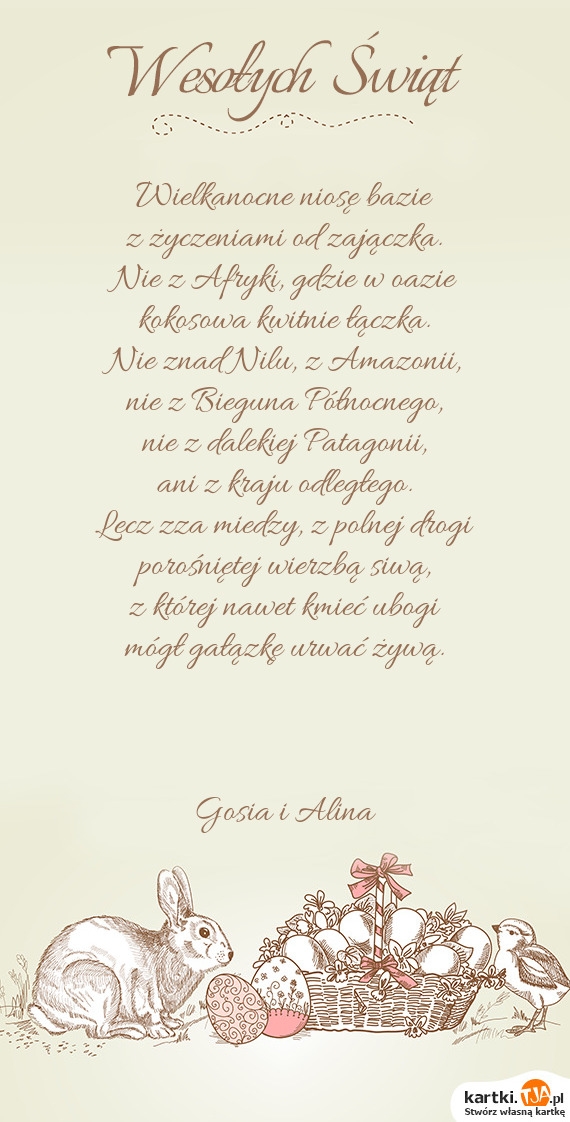 Wesołych Świąt
Wielkanocne niosę bazie
z życzeniami od zajączka.
Nie z Afryki, gdzie w oazie
kokosowa kwitnie łączka.
Nie znad Nilu, z Amazonii,
nie z Bieguna Północnego,
nie z dalekiej Patagonii,
ani z kraju odległego.
Lecz zza miedzy, z polnej drogi
porośniętej wierzbą siwą,
z której nawet kmieć ubogi
mógł gałązkę urwać żywą.
Gosia i Alina
kartki.TJA.pl
Stwórz własną kartkę